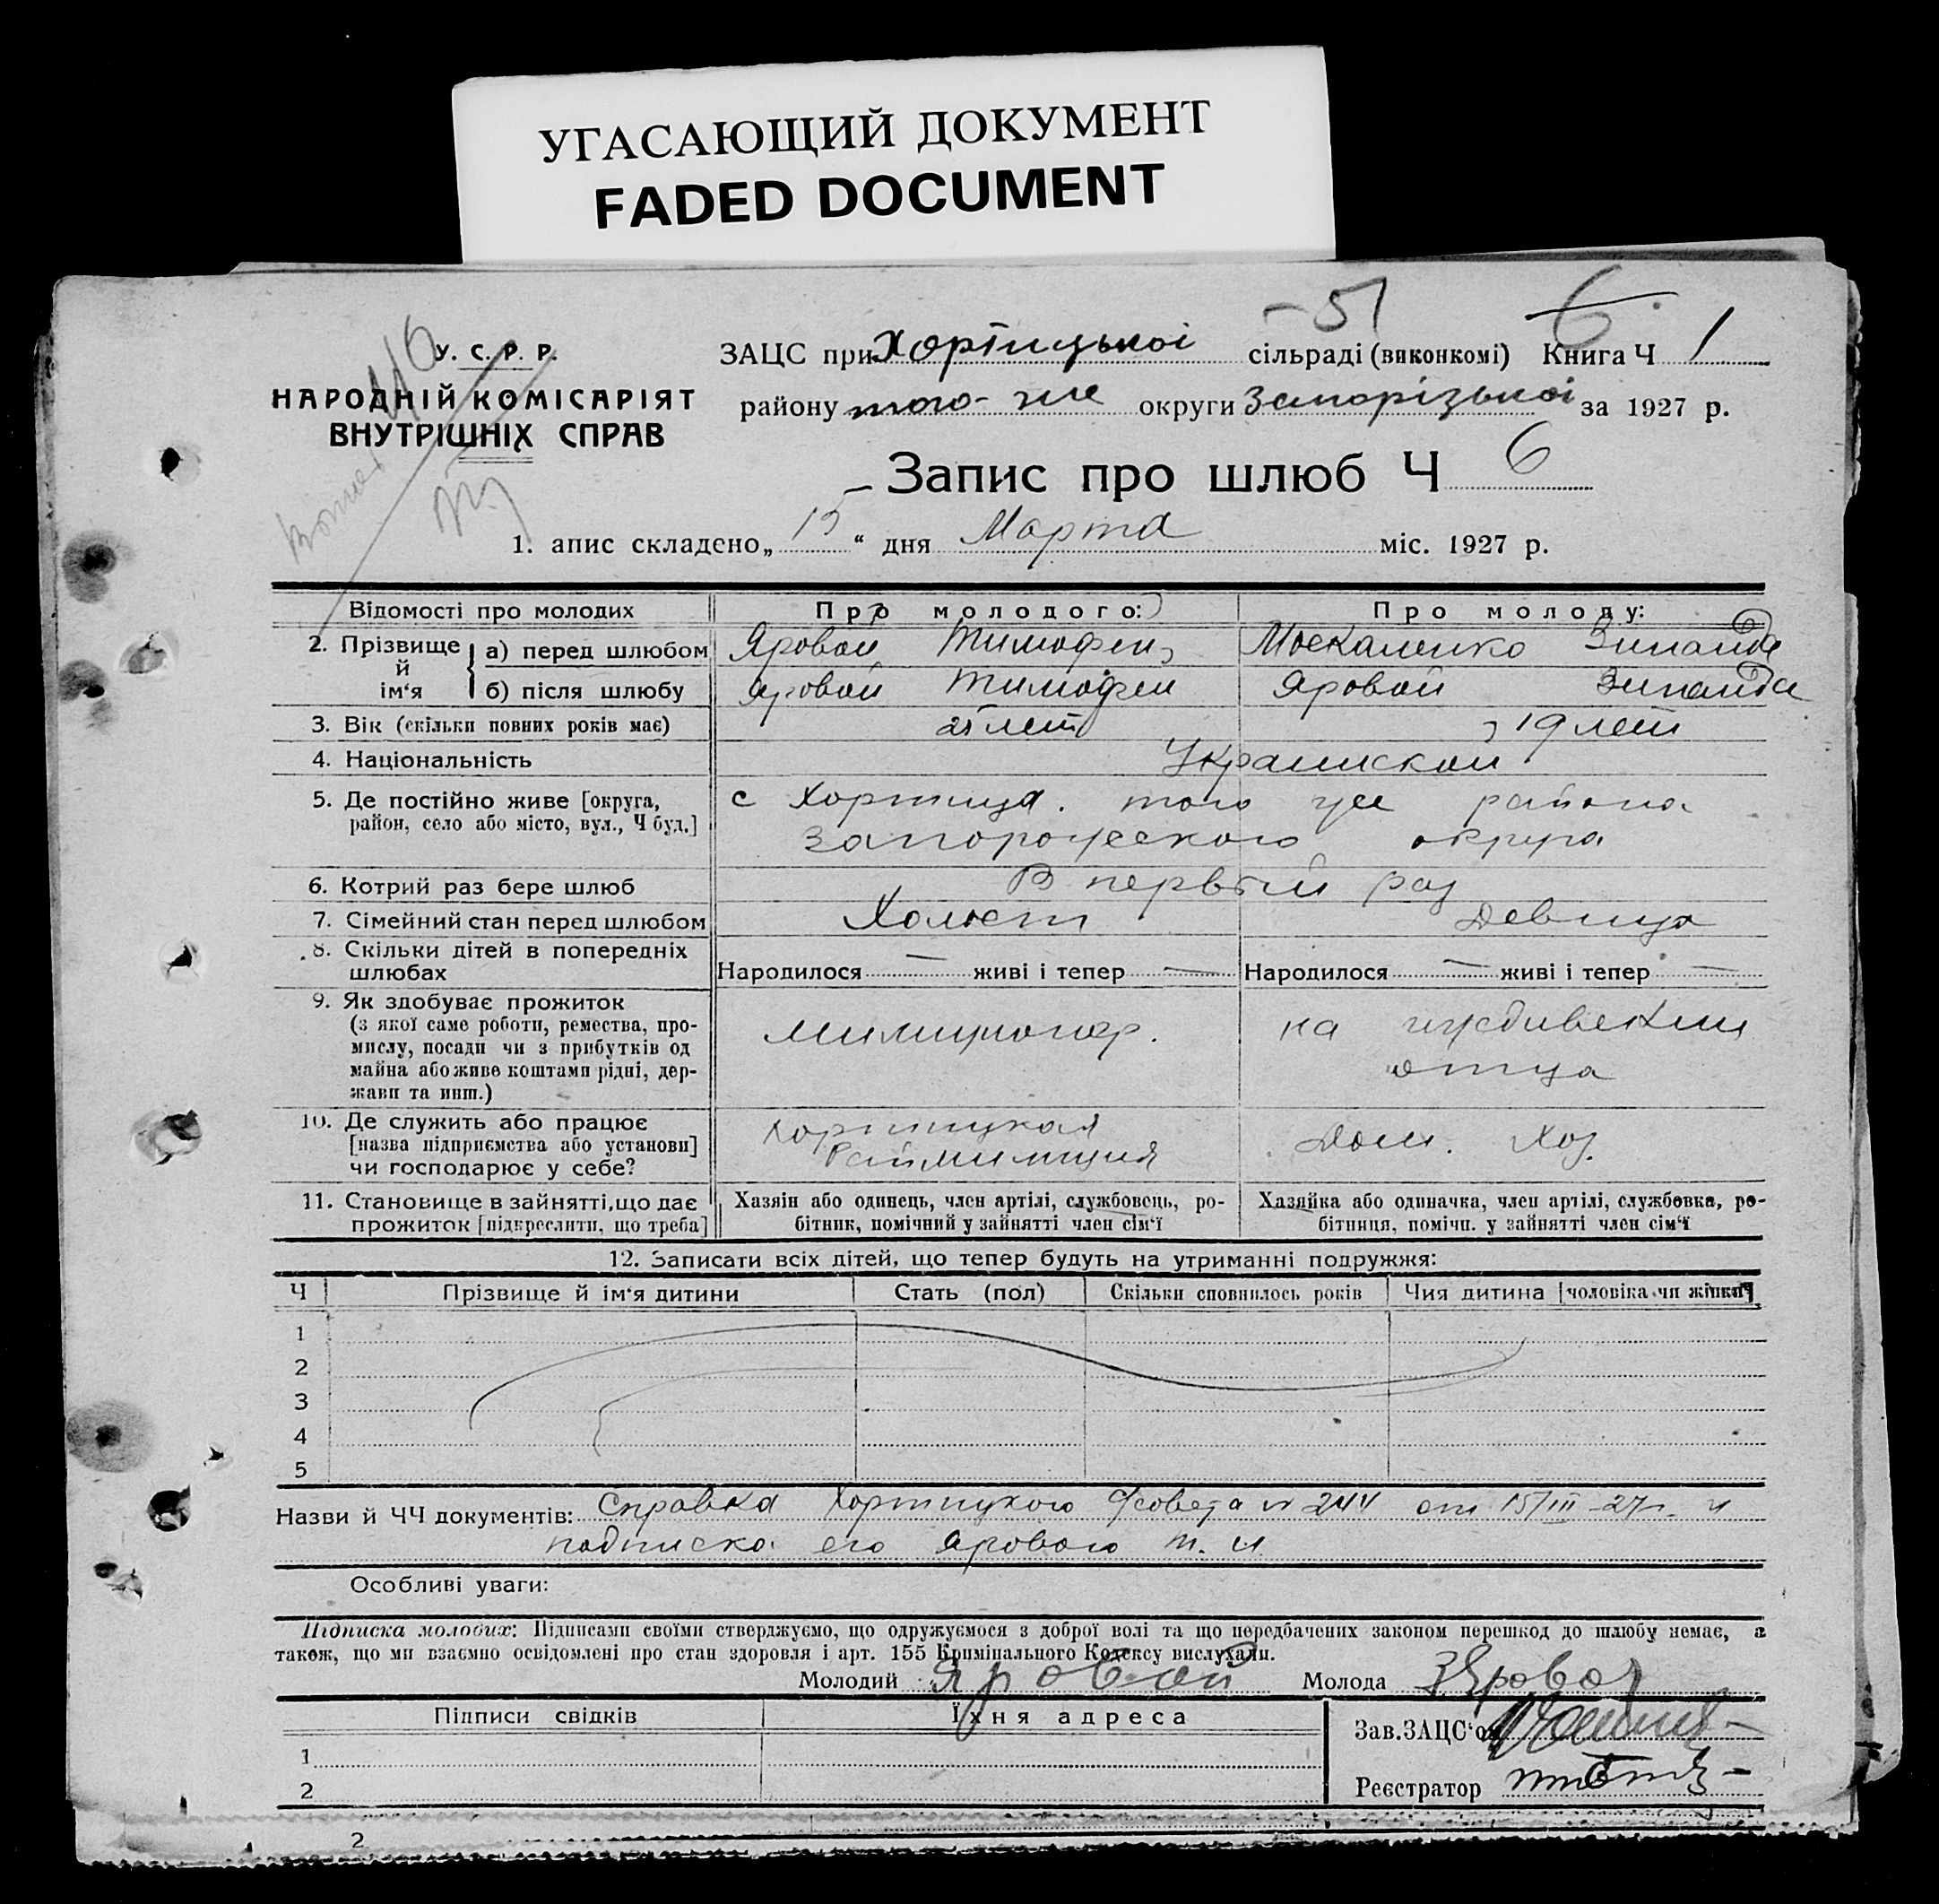 УГАСАЮЩИЙ ДОКУМЕНТ
FADED DOCUMENT
-51 6.
У. С. Р. Р.
НАРОДНІЙ КОМІСАРІЯТ
ВНУТРІШНІХ СПРАВ
ЗАЦС при Хортицькоі сільраді (виконкомі) Книга Ч 1
району того-же округи Запорізькоі за 1927 р.
Запис про шлюб Ч 6
1. апис складено „ 15 “ дня Марта міс. 1927 р.
Відомості про молодих Про молодого: Про молоду:
2. Прізвище й ім‘я а) перед шлюбом Яровой Тимофей Москаленко Зинаида
б) після шлюбу Яровой Тимофей Яровой Зинаида
3. Вік (скільки повних років має) 25 лет 19 лет
4. Національність Украинской
5. Де постійно живе [округа, с Хортица. того же района
район, село або місто, вул., Ч буд.] Запорожского округа
6. Котрий раз бере шлюб В первый раз
7. Сімейний стан перед шлюбом Холост Девица
8. Скільки дітей в попередніх
шлюбах Народилося — живі і тепер — Народилося — живі і тепер —
9. Як здобуває прожиток
(з якої саме роботи, ремества, про-
мислу, посади чи з прибутків од
майна або живе коштами рідні, дер-
жави та инш.)
милиционер. на иждивении
отца
10. Де служить або працює
[назва підприємства або установи]
чи господарює у себе?
Хортицкая
Райммилиция
Дом. Хоз.
11. Становище в зайнятті, що дає
прожиток [підкреслити, що треба]
Хазяїн або одинець, член артілі, службовець, ро-
бітник, помічний у зайнятті член сім‘ї
Хазяйка або одиначка, член артілі, службовка, ро-
бітниця, помічн. у зайнятті член сім‘ї
12. Записати всіх дітей, що тепер будуть на утриманні подружжя:
Ч Прізвище й ім‘я дитини Стать (пол) Скільки сповнилось років Чия дитина [чоловіка чи жінки]
1
2
3
4
5
Назви й ЧЧ документів: Справка Хортицкого с/совета № 244 от 15/III-27г. и
подписка его Ярового Т. И.
Особливі уваги:
Підписка молодих: Підписами своїми стверджуємо, що одружуємося з доброї волі та що передбачених законом перешкод до шлюбу немає, а
також, що ми взаємно освідомлені про стан здоровля і арт. 155 Кримінального Кодексу вислухали.
Молодий Яровой Молода З Яровой
Підписи свідків Їхня адреса
Зав. ЗАЦС‘ом
1
2
Реєстратор
2